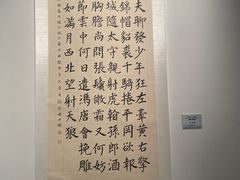 夫聊發少年狂左牽黃右擎
錦帽貂裘千騎捲平岡欲報
城隨太守親射虎看孫郎酒
胸膽尚開張鬢微霜又何妨
節雲中何日遣馮唐會挽雕
如滿月西北望射天狼